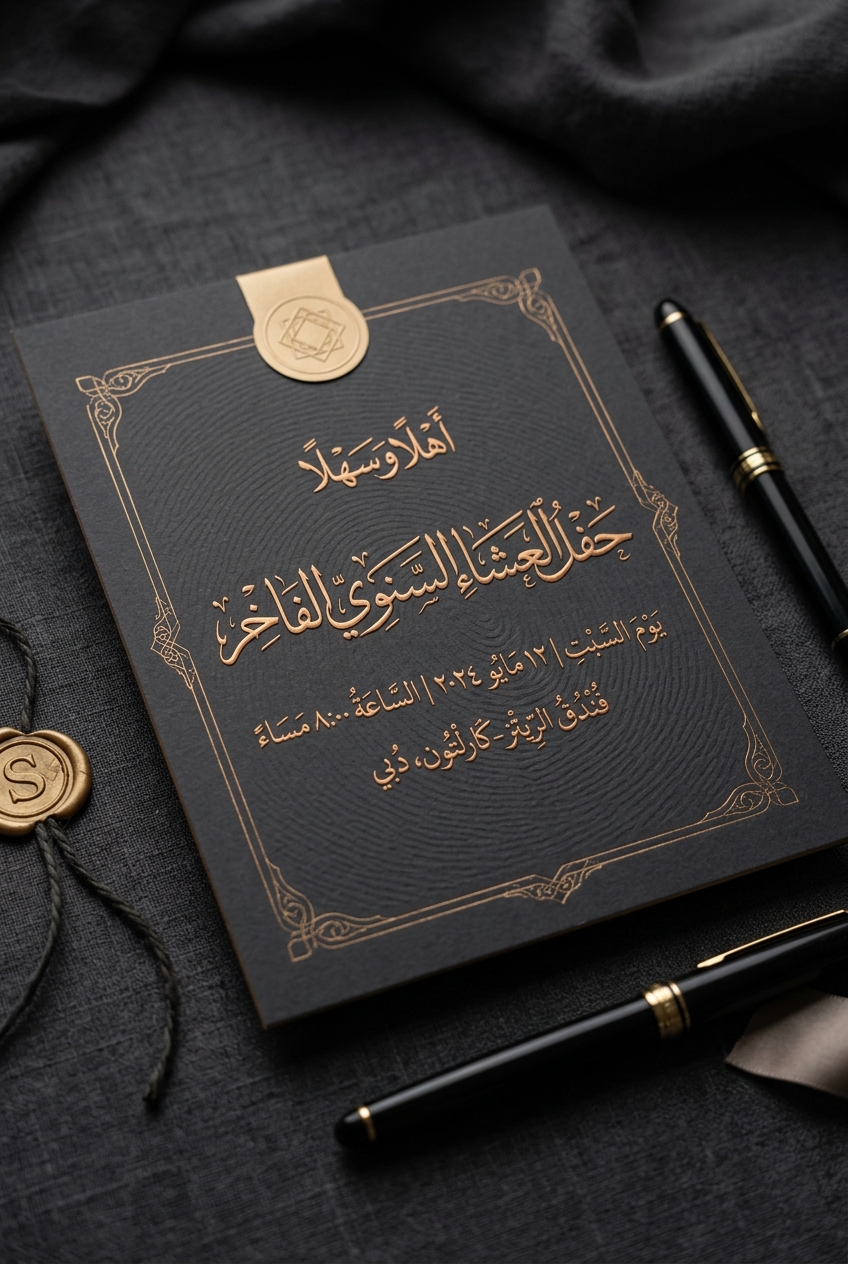 أَهْلًا وَسَهْلًا
حَفْلُ الْعَشَاءِ السَّنَوِيِّ الفَاخِرِ
يَوْمَ السَّبْتِ | ١٢ مَايُو ٢٠٢٤ | السَّاعَةُ ٨:٠٠ مَسَاءً
فُنْدُقُ الرِّيتْز-كَارلْتُون، دُبي
S